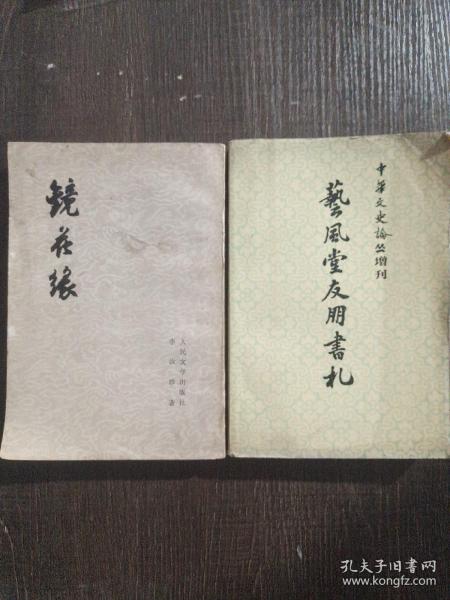 镜花缘
李汝珍 著
人民文学出版社
中华文史论丛增刊
藝風堂友朋書札
孔夫子旧书网
www.kongfz.com